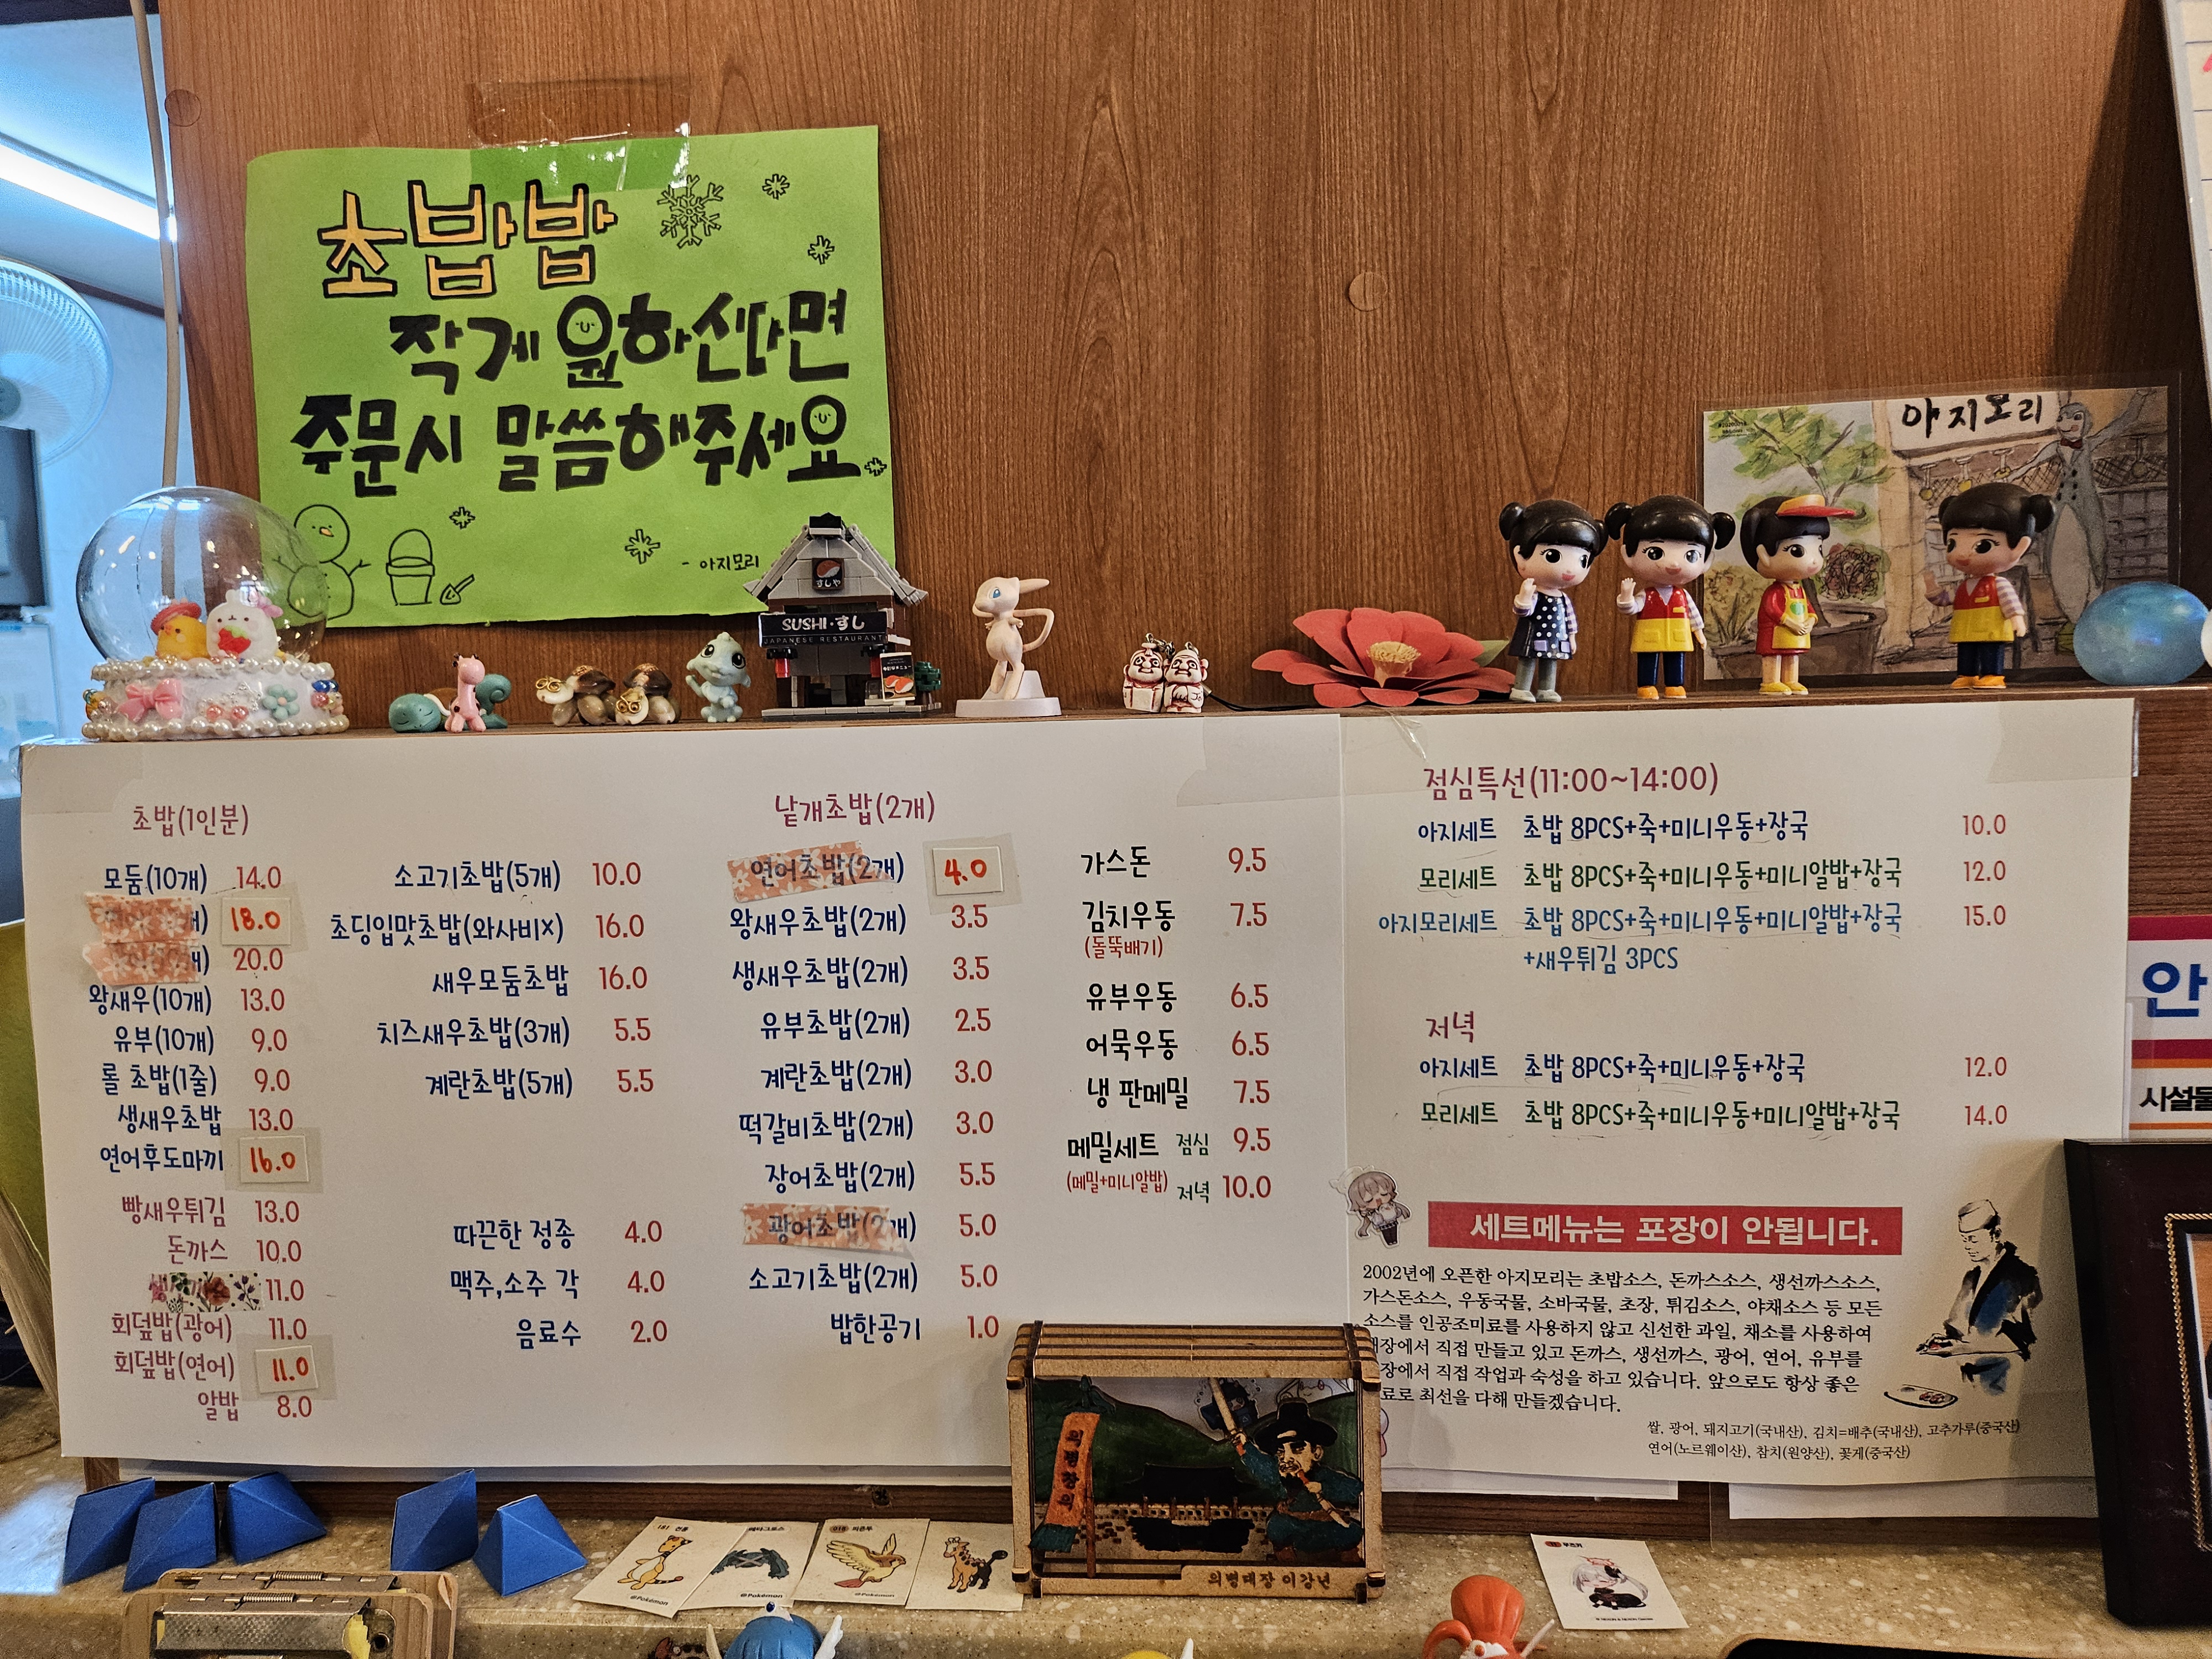 초밥밥
작게 원하신다면
주문시 말씀해주세요
- 아지모리
すしや
SUSHI·すし
JAPANESE RESTAURANT
아지모리
초밥(1인분)
모둠(10개) 14.0
18.0
20.0
왕새우(10개) 13.0
유부(10개) 9.0
롤 초밥(1줄) 9.0
생새우초밥 13.0
연어후도마끼 16.0
빵새우튀김 13.0
돈까스 10.0
11.0
회덮밥(광어) 11.0
회덮밥(연어) 11.0
알밥 8.0
소고기초밥(5개) 10.0
초딩입맛초밥(와사비x) 16.0
새우모둠초밥 16.0
치즈새우초밥(3개) 5.5
계란초밥(5개) 5.5
따끈한 정종 4.0
맥주,소주 각 4.0
음료수 2.0
낱개초밥(2개)
연어초밥(2개) 4.0
왕새우초밥(2개) 3.5
생새우초밥(2개) 3.5
유부초밥(2개) 2.5
계란초밥(2개) 3.0
떡갈비초밥(2개) 3.0
장어초밥(2개) 5.5
광어초밥(2개) 5.0
소고기초밥(2개) 5.0
밥한공기 1.0
가스돈 9.5
김치우동 7.5
(돌뚝배기)
유부우동 6.5
어묵우동 6.5
냉 판메밀 7.5
메밀세트 점심 9.5
(메밀+미니알밥) 저녁 10.0
점심특선(11:00~14:00)
아지세트 초밥 8PCS+죽+미니우동+장국 10.0
모리세트 초밥 8PCS+죽+미니우동+미니알밥+장국 12.0
아지모리세트 초밥 8PCS+죽+미니우동+미니알밥+장국 15.0
+새우튀김 3PCS
저녁
아지세트 초밥 8PCS+죽+미니우동+장국 12.0
모리세트 초밥 8PCS+죽+미니우동+미니알밥+장국 14.0
세트메뉴는 포장이 안됩니다.
2002년에 오픈한 아지모리는 초밥소스, 돈까스소스, 생선까스소스,
가스돈소스, 우동국물, 소바국물, 초장, 튀김소스, 야채소스 등 모든
소스를 인공조미료를 사용하지 않고 신선한 과일, 채소를 사용하여
장에서 직접 만들고 있고 돈까스, 생선까스, 광어, 연어, 유부를
장에서 직접 작업과 숙성을 하고 있습니다. 앞으로도 항상 좋은
료로 최선을 다해 만들겠습니다.
쌀, 광어, 돼지고기(국내산), 김치=배추(국내산), 고추가루(중국산)
연어(노르웨이산), 참치(원양산), 꽃게(중국산)
안
시설물
의병창의
의병대장 이강년
181 전룡
메타그로스
018 피죤투
@Pokémon
@Pokémon
@Pokémon